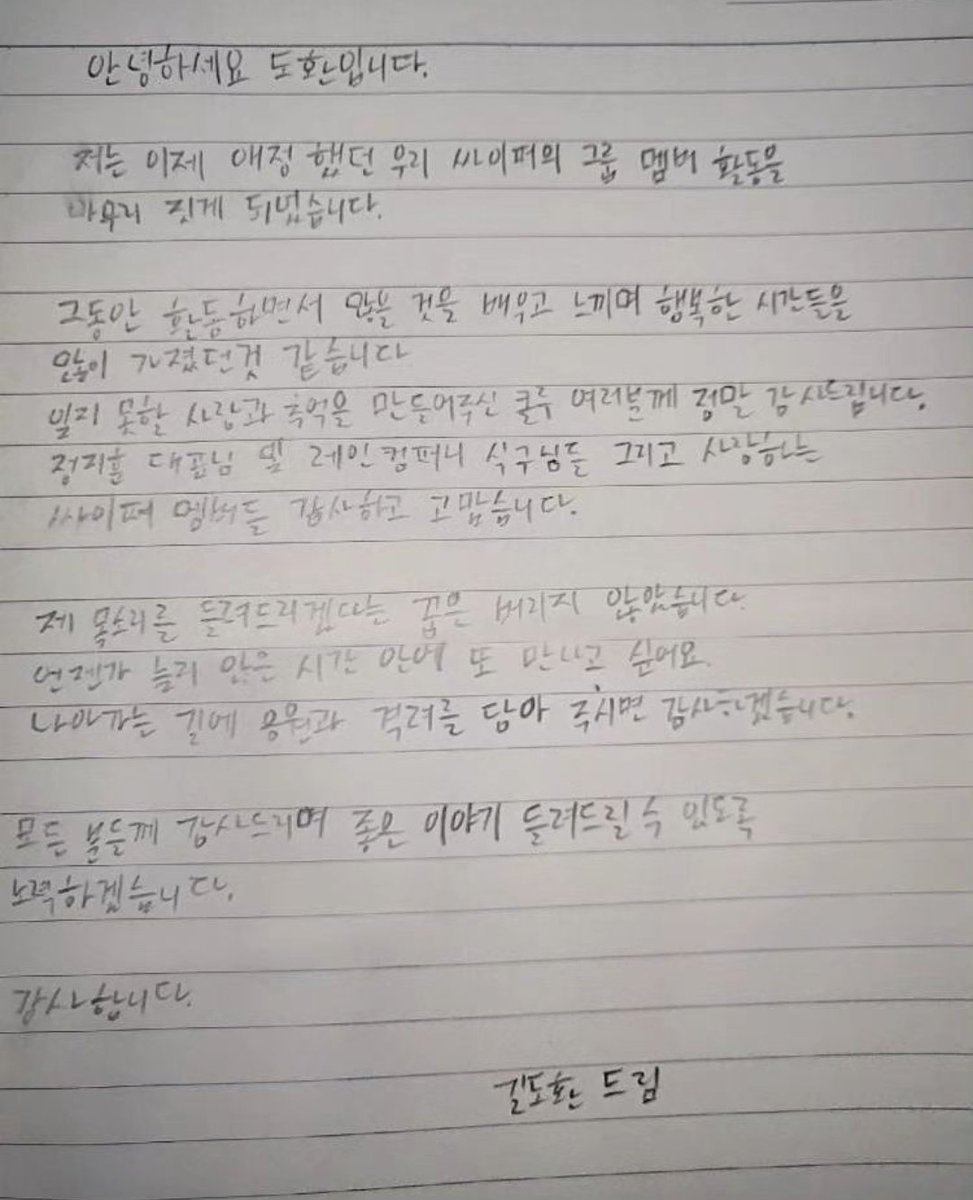 안녕하세요 도환입니다.
저는 이제 애정 했던 우리 싸이퍼의 그룹 멤버 활동을
마무리 짓게 되었습니다.
그동안 활동하면서 많을 것을 배우고 느끼며 행복한 시간들을
많이 가졌던것 같습니다
잊지 못할 사랑과 추억을 만들어주신 쿨루 여러분께 정말 감사드립니다.
정지훈 대표님 및 레인컴퍼니 식구님들 그리고 사랑하는
싸이퍼 멤버들 감사하고 고맙습니다.
제 목소리를 들려드리겠다는 꿈은 버리지 않았습니다
언젠가 늦지 않은 시간 안에 또 만나고 싶어요.
나아가는 길에 응원과 격려를 담아 주시면 감사하겠습니다.
모든 분들께 감사드리며 좋은 이야기 들려드릴 수 있도록
노력하겠습니다.
감사합니다.
길도환 드림